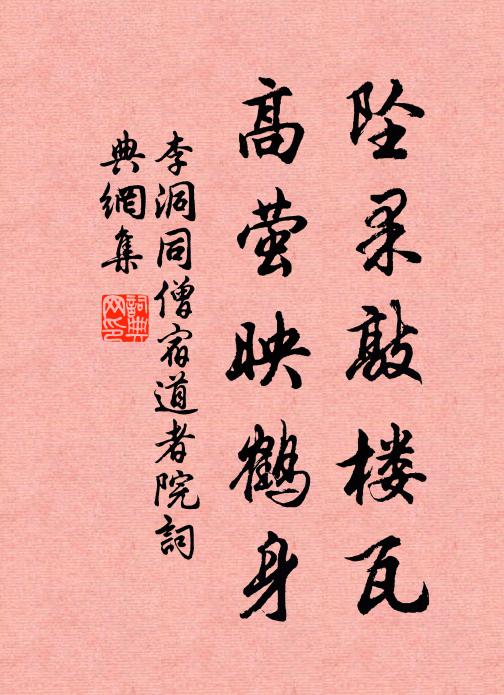 坠果敲楼瓦
高萤映鹤身
李洞同僧宿道者院詞
典網集
詞典网印